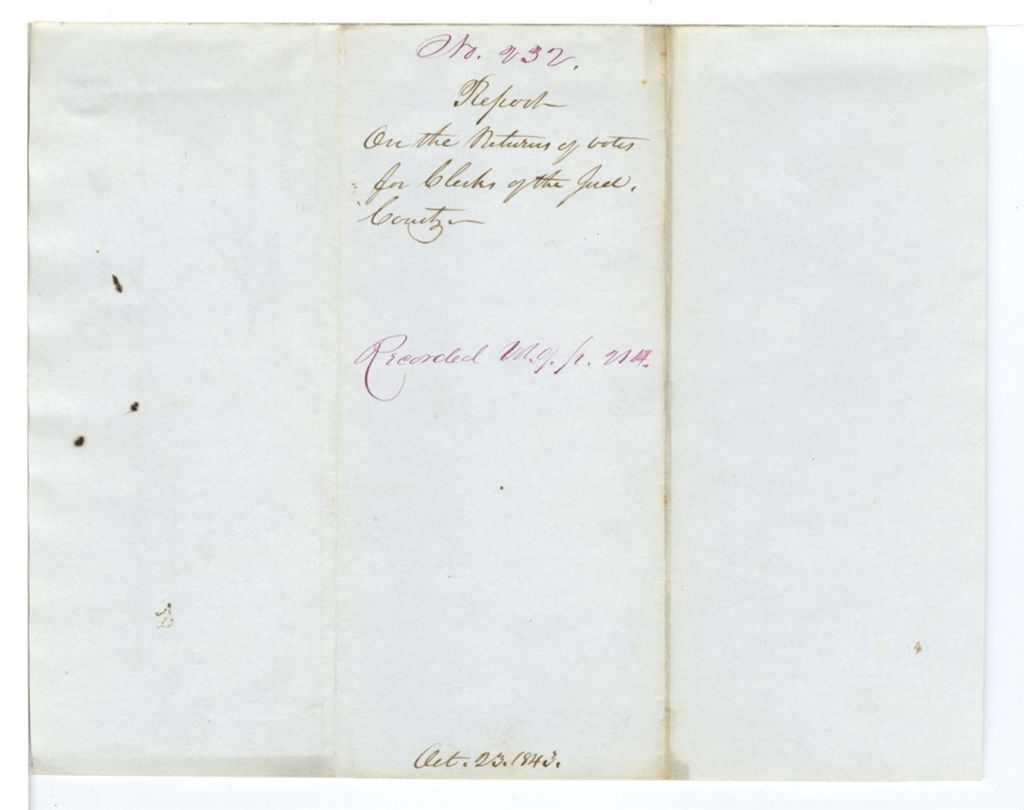 No. 232.
Report
On the Returns of votes
for Clerks of the Jud.
County
Recorded Vol. 9. p. 214.
Oct. 23. 1843.